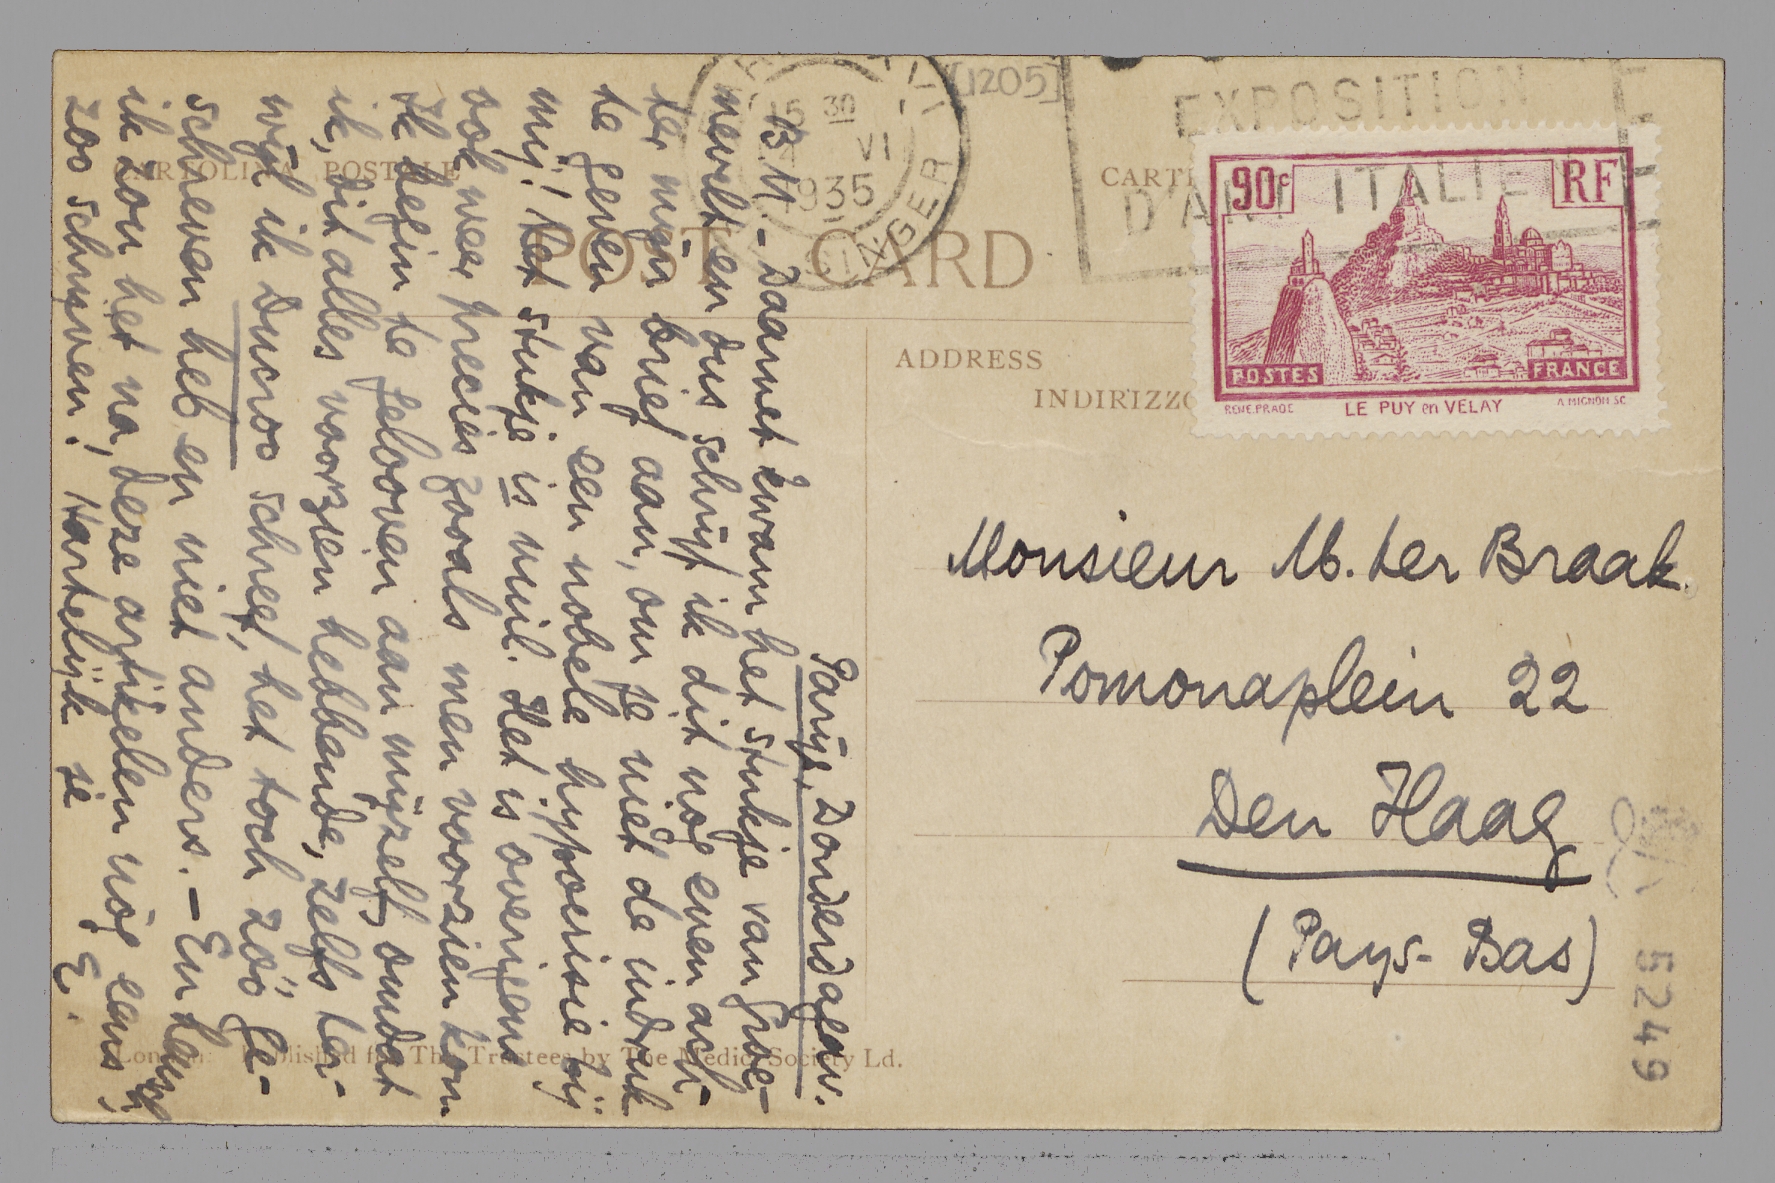 [1205]
15 30
VI
1935
SINGER
EXPOSITION
D'ART ITALIEN
CARTOLINA POSTALE
CARTE
POST CARD
90c
RF
POSTES
FRANCE
RENE.PRADE
LE PUY en VELAY
A MIGNON SC
ADDRESS
INDIRIZZO
Monsieur M. ter Braak
Pomonaplein 22
Den Haag
(Pays-Bas)
52249
Parijs, Donderdagav.
B.M. - Daarnet kwam het stukje van Groe-
nevelt en dus schrijf ik dit nog even ach-
ter mijn brief aan, om je niet de indruk
te geven van een nobele hypocrisie bij
mij! Het stukje is vuil. Het is overigens
ook weer precies zooals men voorzien kon.
Ik begin te gelooven aan mijzelf, omdat
ik, dit alles voorzien hebbende, zelfs ter-
wijl ik Ducroo schreef, het toch zóó ge-
schreven heb en niet anders. - En toch,
ik zou het na deze artikelen nòg eens
zoo schrijven! Hartelijk je E.
London: Published for The Trustees by The Medici Society Ld.